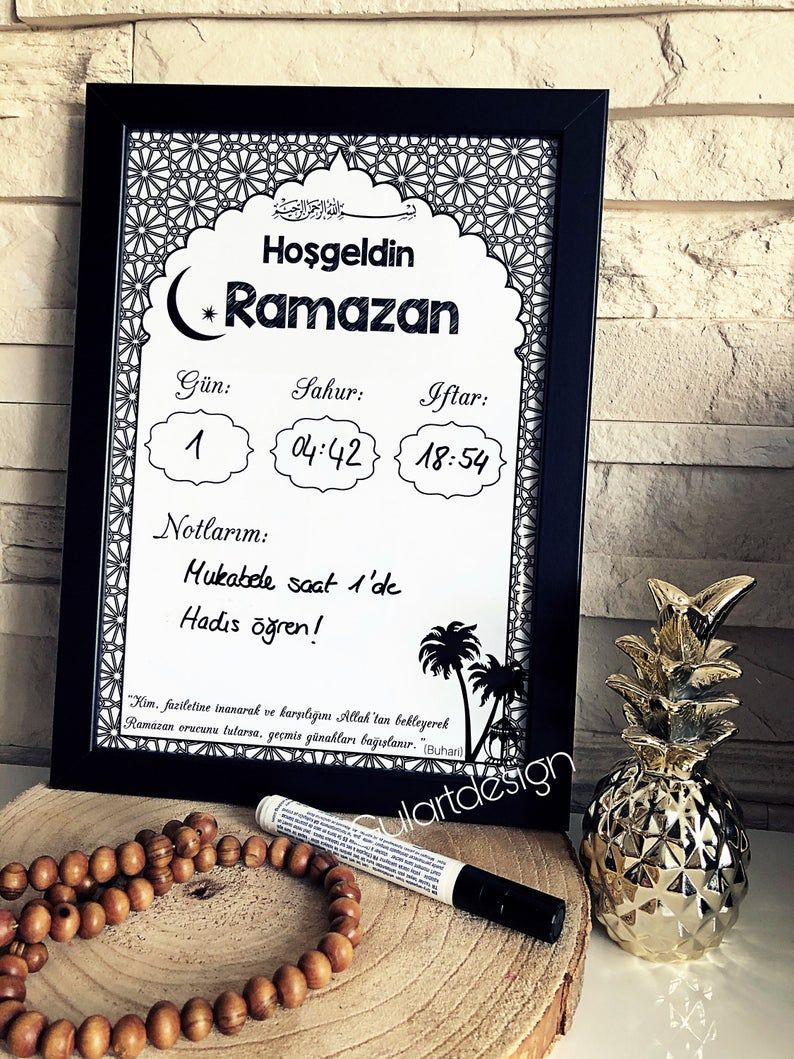 بسم الله الرحمن الرحيم
Hoşgeldin
Ramazan
Gün: Sahur: Iftar:
1 04:42 18:54
Notlarım:
Mukabele saat 1'de
Hadis öğren!
"Kim, faziletine inanarak ve karşılığını Allah'tan bekleyerek
Ramazan orucunu tutarsa, geçmiş günahları bağışlanır." (Buhari)
Gulartdesign